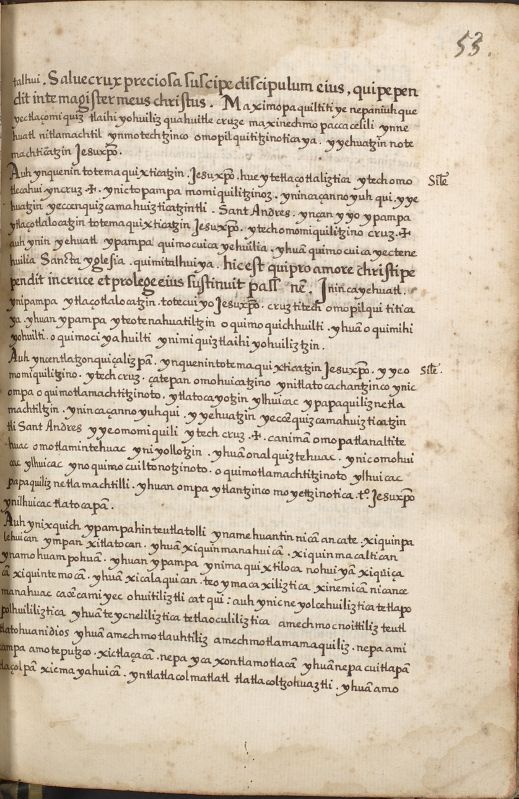 53.
talhui. Salue crux preciosa suscipe discipulum eius, qui pepen
dit in te magister meus christus. Maximopaquiltiti ye nepaniuhque
yectlaçomiquiz tlaihiyohuiliz quahuitle cruze maxinechmopaccacelili ynne
huatl nitlamachtil ynmotechtzinco omopilquitizinotica ya. yyehuatzin note
machticatzin Jesuxpo.
Auh ynquenin totemaquixticatzin Jesuxpo. hueytetlaçotlaliztica ytech omo
tlecahui yn cruz ✠. ynic topampa momiquilitzinoz. yninacanno yuh qui. yye
huatzin yeccenquizcamahuizticatzintli. Sant Andres. yncan yyo ypampa
ytlaçotlalocatzin totemaquixticatzin Jesuxpo. ytech omomiquilitzino cruz. ✠
auh ynin yehuatl ypampa quimocuica yehuilia. yhuā quimocuicayectene
huilia Sancta yglesia. quimitalhui ya. hic est qui pro amore christi pe
pendit in cruce et pro lege eius sustinuit pass nē. Inin ca yehuatl.
ynipampa ytlaçotlalocatzin. totecuiyo Jesuxpo. cruztitech omopilquititica
ya. yhuan ypampa yteotenahuatiltzin oquimoquichhuilti. yhuā oquimihi
yohuilti. oquimociyahuilti ynimiquiztlaihiyohuiliztzin.
Auh yncentlatzonquiçalizpā. ynquenin totemaquixticatzin Jesuxpo. yyeo
momiquilitzino. ytech cruz. çatepan omohuicatzino ynitlatocachantzinco ynic
ompa oquimotlamachtitzinoto. ytlatocayotzin ylhuicac ypapaquiliznetla
machtiltzin. ynincaçanno yuhqui. yyehuatzin yeccēquizcamahuizticatzin
tli Sant Andres yyeomomiquili ytech cruz. ✠. canimā omopatlanaltite
huac omotlamintehuac yniyollotzin. yhuan onalquiztehuac. ynicomohui
cac ylhuicac ynoquimocuiltonotzinoto. oquimotlamachtitzinoto ylhuicac
papaquiliznetlamachtilli. yhuan ompa ytlantzinco moyetztinotica. to. Jesuxpo
ynilhuicac tlatocapan.
Auh ynixquich ypampahin teutlatolli ynamehuantin nican ancate. xiquinpa
lehuican ympan xitlatocan. yhuā xiquinmanahuicā. xiquinmacaltican
ynamohuampohuan. yhuan ypampa ynimaquixtiloca nohuiyan xiquiica
cā xiquintemocā. yhuā xicalaquican. teoymacaxiliztica xinemicā nicance
manahuac caoc camiyec ohuitiliztli cat qui: auh ynicneyolcehuiliztica tetlapo
polhuililiztica yhuā teycneliliztica tetlaoculiliztica amechmocnoittiliz teutl
tlatohuani dios yhuā amechmotlauhtiliz amechmotlamamaquiliz. nepa ami
campa amoteputzco. xictlaçacā. nepa yca xontlamotlacā yhuā nepa cuitlapā
tlaçolpā xiemayahuicā. yntlatlacolmatlatl tlatlacoltzohuaztli. yhuā amo